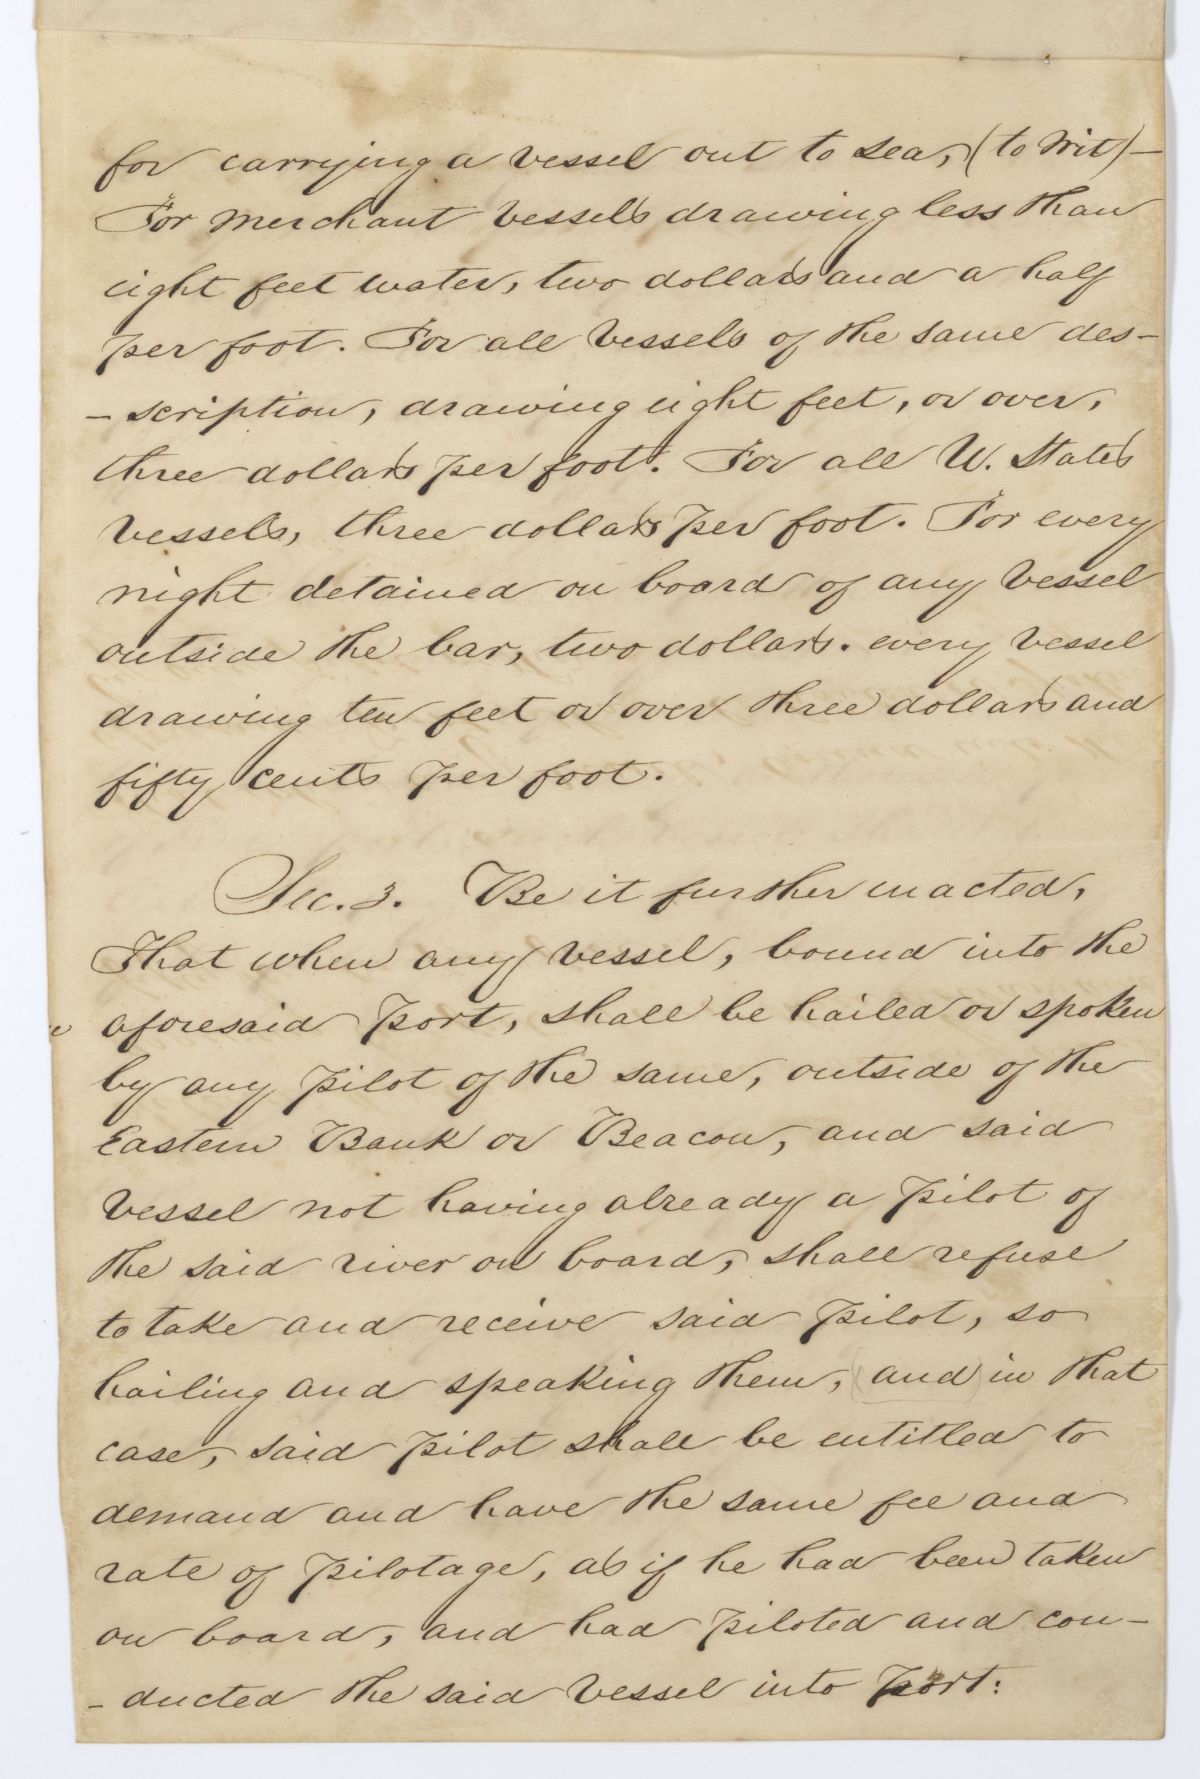 for carrying a vessel out to sea, (to wit)—
For merchant vessels drawing less than
eight feet water, two dollars and a half
per foot. For all vessels of the same des-
- scription, drawing eight feet, or over,
three dollars per foot. For all U. States
vessels, three dollars per foot. For every
night detained on board of any vessel
outside the bar, two dollars. every vessel
drawing ten feet or over three dollars and
fifty cents per foot.
Sec. 3. Be it further enacted,
That when any vessel, bound into the
aforesaid Port, shall be hailed or spoken
by any Pilot of the same, outside of the
Eastern Bank or Beacon, and said
vessel not having already a Pilot of
the said river on board, shall refuse
to take and receive said Pilot, so
hailing and speaking them, (and) in that
case, said Pilot shall be entitled to
demand and have the same fee and
rate of Pilotage, as if he had been taken
on board, and had Piloted and con-
- ducted the said vessel into Port: